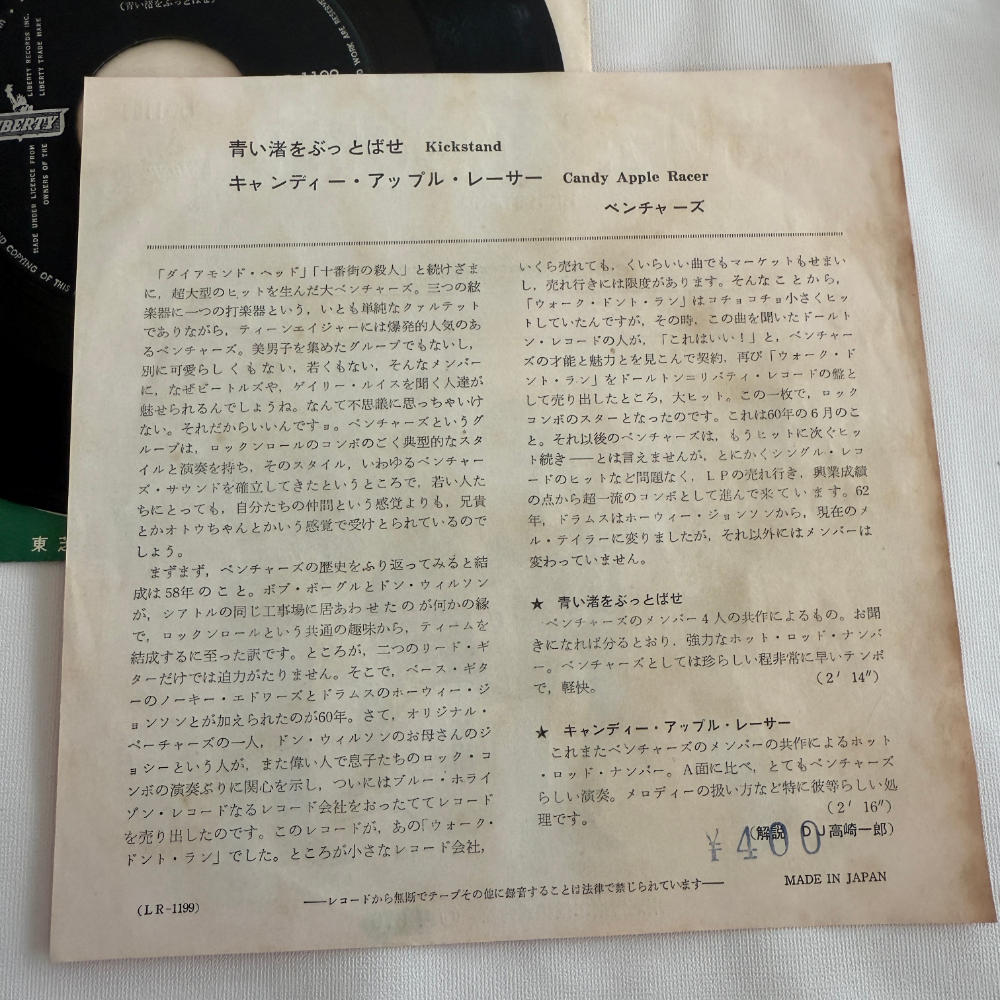 (青い渚をぶっとばせ)
LIBERTY
LIBERTY RECORDS INC.
LIBERTY TRADE MARK
MADE UNDER LICENCE FROM
OWNERS OF THE
WORK ARE RESERVED
COPYING OF THIS
青い渚をぶっとばせ Kickstand
キャンディー・アップル・レーサー Candy Apple Racer
ベンチャーズ
「ダイアモンド・ヘッド」「十番街の殺人」と続けざま
に，超大型のヒットを生んだ大ベンチャーズ。三つの絃
楽器に一つの打楽器という，いとも単純なクァルテット
でありながら，ティーンエイジャーには爆発的人気のあ
るベンチャーズ。美男子を集めたグループでもないし，
別に可愛らしくもない，若くもない，そんなメンバー
に，なぜビートルズや，ゲイリー・ルイスを聞く人達が
魅せられるんでしょうね。なんて不思議に思っちゃいけ
ない。それだからいいんですョ。ベンチャーズというグ
ループは，ロックンロールのコンボのごく典型的なスタ
イルと演奏を持ち，そのスタイル，いわゆるベンチャー
ズ・サウンドを確立してきたというところで，若い人た
ちにとっても，自分たちの仲間という感覚よりも，兄貴
とかオトウちゃんとかいう感覚で受けとられているので
しょう。
まずまず，ベンチャーズの歴史をふり返ってみると結
成は58年のこと。ボブ・ボーグルとドン・ウィルソン
が，シアトルの同じ工事場に居あわせたのが何かの縁
で，ロックンロールという共通の趣味から，ティームを
結成するに至った訳です。ところが，二つのリード・ギ
ターだけでは迫力がたりません。そこで，ベース・ギタ
ーのノーキー・エドワーズとドラムスのホーウィー・ジ
ョンソンとが加えられたのが60年。さて，オリジナル・
ベーチャーズの一人，ドン・ウィルソンのお母さんのジ
ョシーという人が，また偉い人で息子たちのロック・コ
ンボの演奏ぶりに関心を示し，ついにはブルー・ホライ
ゾン・レコードなるレコード会社をおったててレコード
を売り出したのです。このレコードが，あの「ウォーク・
ドント・ラン」でした。ところが小さなレコード会社，
いくら売れても，くいらいい曲でもマーケットもせまい
し，売れ行きには限度があります。そんなことから，
「ウォーク・ドント・ラン」はコチョコチョ小さくヒッ
トしていたんですが，その時，この曲を聞いたドールト
ン・レコードの人が，「これはいい！」と，ベンチャー
ズの才能と魅力とを見こんで契約，再び「ウォーク・ド
ント・ラン」をドールトン＝リバティ・レコードの盤と
して売り出したところ，大ヒット。この一枚で，ロック
コンボのスターとなったのです。これは60年の6月のこ
と。それ以後のベンチャーズは，もうヒットに次ぐヒッ
ト続き——とは言えませんが，とにかくシングル・レコ
ードのヒットなど問題なく，ＬＰの売れ行き，興業成績
の点から超一流のコンボとして進んで来ています。62
年，ドラムスはホーウィー・ジョンソンから，現在のメ
ル・テイラーに変りましたが，それ以外にはメンバーは
変わっていません。
★ 青い渚をぶっとばせ
ベンチャーズのメンバー4人の共作によるもの。お聞
きになれば分るとおり，強力なホット・ロッド・ナンバ
ー。ベンチャーズとしては珍らしい程非常に早いテンポ
で，軽快。 (2′ 14″)
★ キャンディー・アップル・レーサー
これまたベンチャーズのメンバーの共作によるホット
・ロッド・ナンバー。A面に比べ，とてもベンチャーズ
らしい演奏。メロディーの扱い方など特に彼等らしい処
理です。 (2′ 16″)
(解説 DJ高崎一郎)
¥400
MADE IN JAPAN
——レコードから無断でテープその他に録音することは法律で禁じられています——
(LR-1199)
東芝